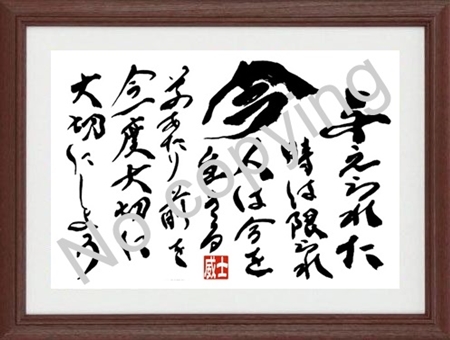 与えられた
時は限られ
今
人は今を
生きる
あたり前を
今一度大切に
大切にしよう
威士
No copying